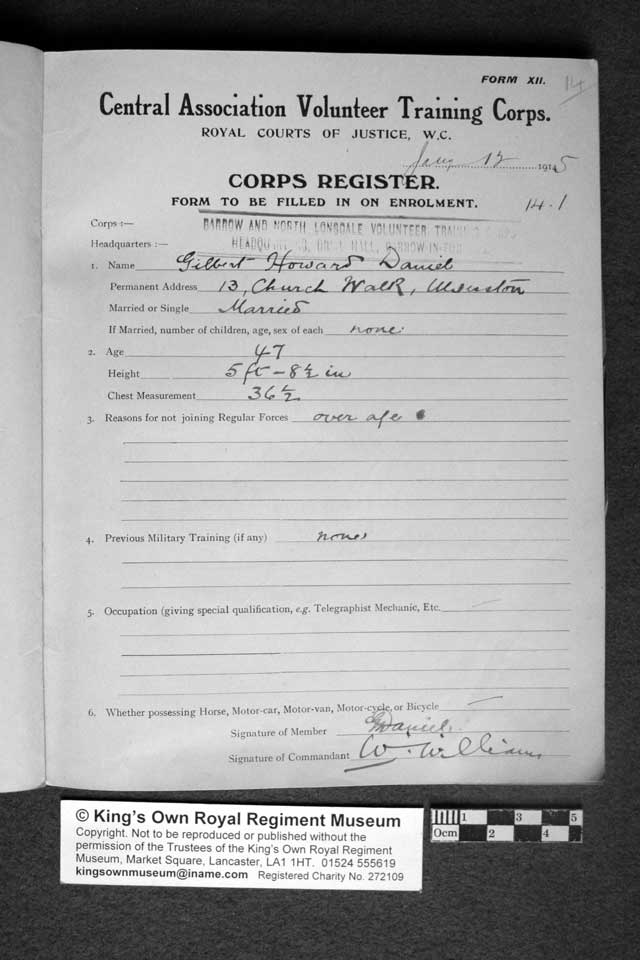 FORM XII. 14
Central Association Volunteer Training Corps.
ROYAL COURTS OF JUSTICE, W.C.
Jany 12 1915
CORPS REGISTER.
FORM TO BE FILLED IN ON ENROLMENT. 14.1
Corps :— BARROW AND NORTH LONSDALE VOLUNTEER TRAINING CORPS
Headquarters :— HEADQUARTERS, DRILL HALL, BARROW-IN-FURNESS
1. Name Gilbert Howard Daniel
Permanent Address 13, Church Walk, Ulverston
Married or Single Married
If Married, number of children, age, sex of each none
2. Age 47
Height 5 ft - 8 1/2 in
Chest Measurement 36 1/2
3. Reasons for not joining Regular Forces over age
4. Previous Military Training (if any) none
5. Occupation (giving special qualification, e.g. Telegraphist Mechanic, Etc. —
6. Whether possessing Horse, Motor-car, Motor-van, Motor-cycle, or Bicycle —
Signature of Member GDaniel
Signature of Commandant W. Williams
© King's Own Royal Regiment Museum
Copyright. Not to be reproduced or published without the
permission of the Trustees of the King's Own Royal Regiment
Museum, Market Square, Lancaster, LA1 1HT. 01524 555619
kingsownmuseum@iname.com Registered Charity No. 272109
1 3 5
0cm 2 4